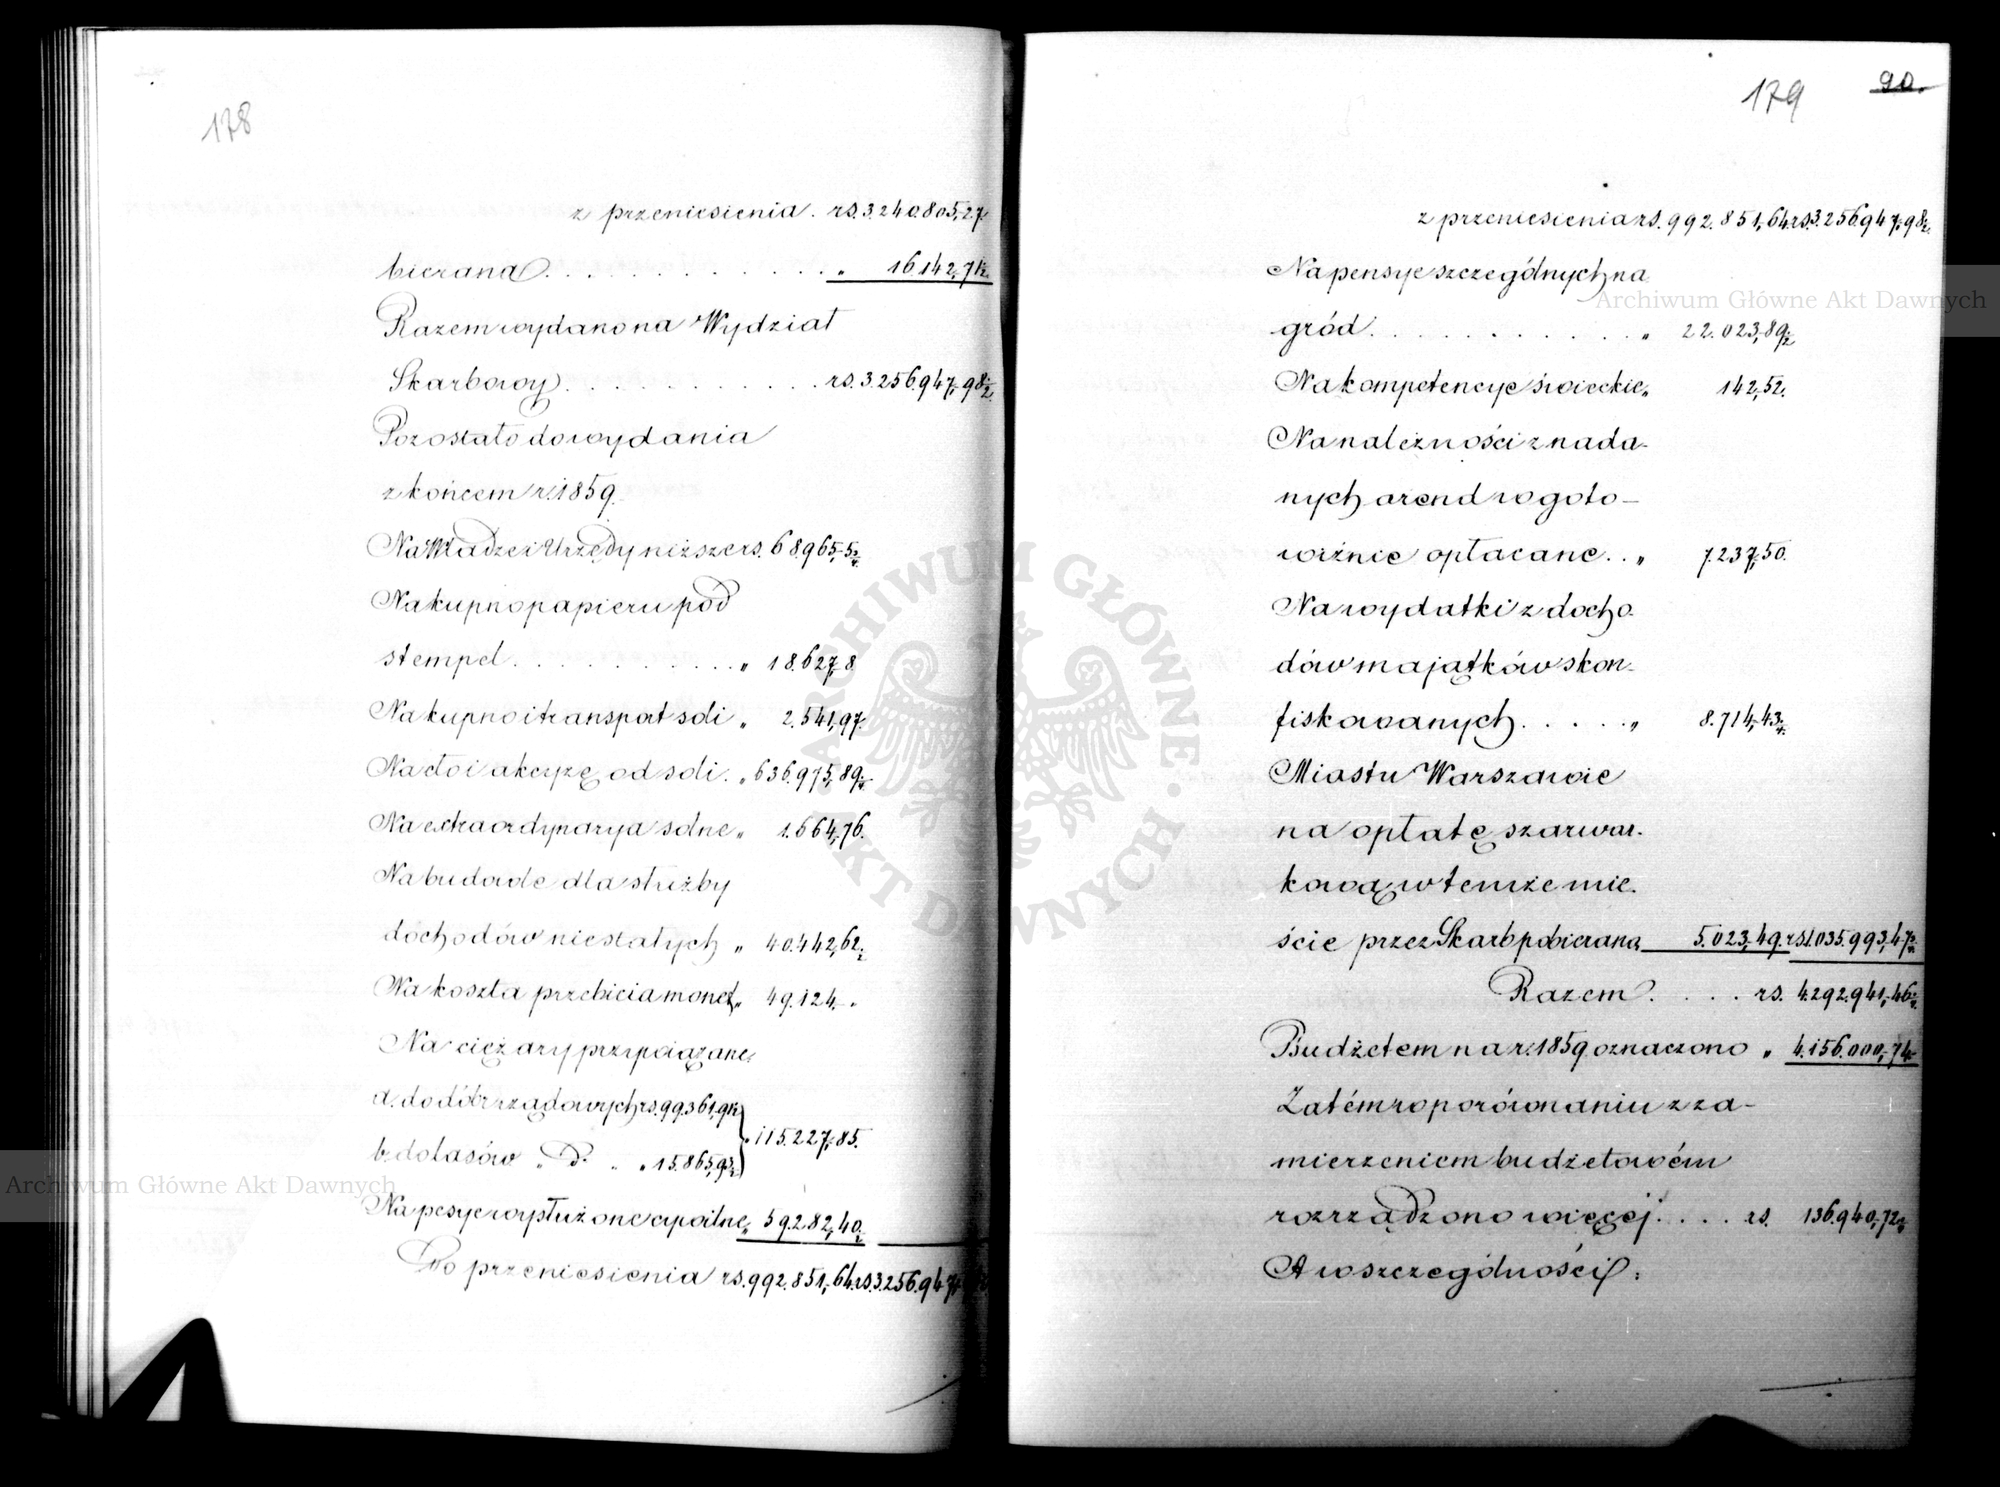 178
z przeniesienia. rs. 3.240.805,27.
bierana . . . . . . . . . . . . . „ 16.142,71½.
Razem wydano na Wydział
Skarbowy . . . . . . . . . . . . rs. 3.256.947,98½.
Pozostało do wydania
z końcem r. 1859.
Na Władze i Urzędy niższe rs. 68.965,5¾.
Na kupno papieru pod
stempel . . . . . . . . . . . . „ 18.627,8
Na kupno i transport soli „ 2.541,97.
Na cło i akcyzę od soli. „ 636.975,89¼.
Na extraordynarya solne „ 1.664,76.
Na budowle dla służby
dochodów niestałych „ 40.442,62½
Na koszta przebicia monet „ 49.124. „
Na ciężary przywiązane
a. do dóbr rządowych rs. 99.361,91½
} . 115.227,85.
b. do lasów „ d° „ „ 15.865,93½
Na pesye wysłużone cywilne „ 59.282,40½
Do przeniesienia rs. 992.851,64. rs. 3.256.947,
179
90.
z przeniesienia rs. 992.851,64. rs. 3.256.947,98½.
Na pensye szczególnych na
gród . . . . . . . . . . . . „ 22.023,89½
Na kompetencye świeckie „ 142,52.
Na należności z nada-
nych arend w goto-
wiźnie opłacane . . „ 7.237,50.
Na wydatki z docho-
dów majątków skon-
fiskowanych . . . . . „ 8.714,43¾.
Miastu Warszawie
na opłatę szarwar-
kową w temże mie-
ście przez Skarb pobieraną 5.023,49. rs. 1.035.993,47¾.
Razem . . . . rs. 4.292.941,46¼.
Budżetem na r. 1859. oznaczono „ 4.156.000,74.
Zatém w porównaniu z za-
mierzeniem budżetowém
rozrządzono więcej . . . . rs. 136.940,72¼
A w szczególności:
Archiwum Główne Akt Dawnych
Archiwum Główne Akt Dawnych
ARCHIWUM GŁÓWNE AKT DAWNYCH